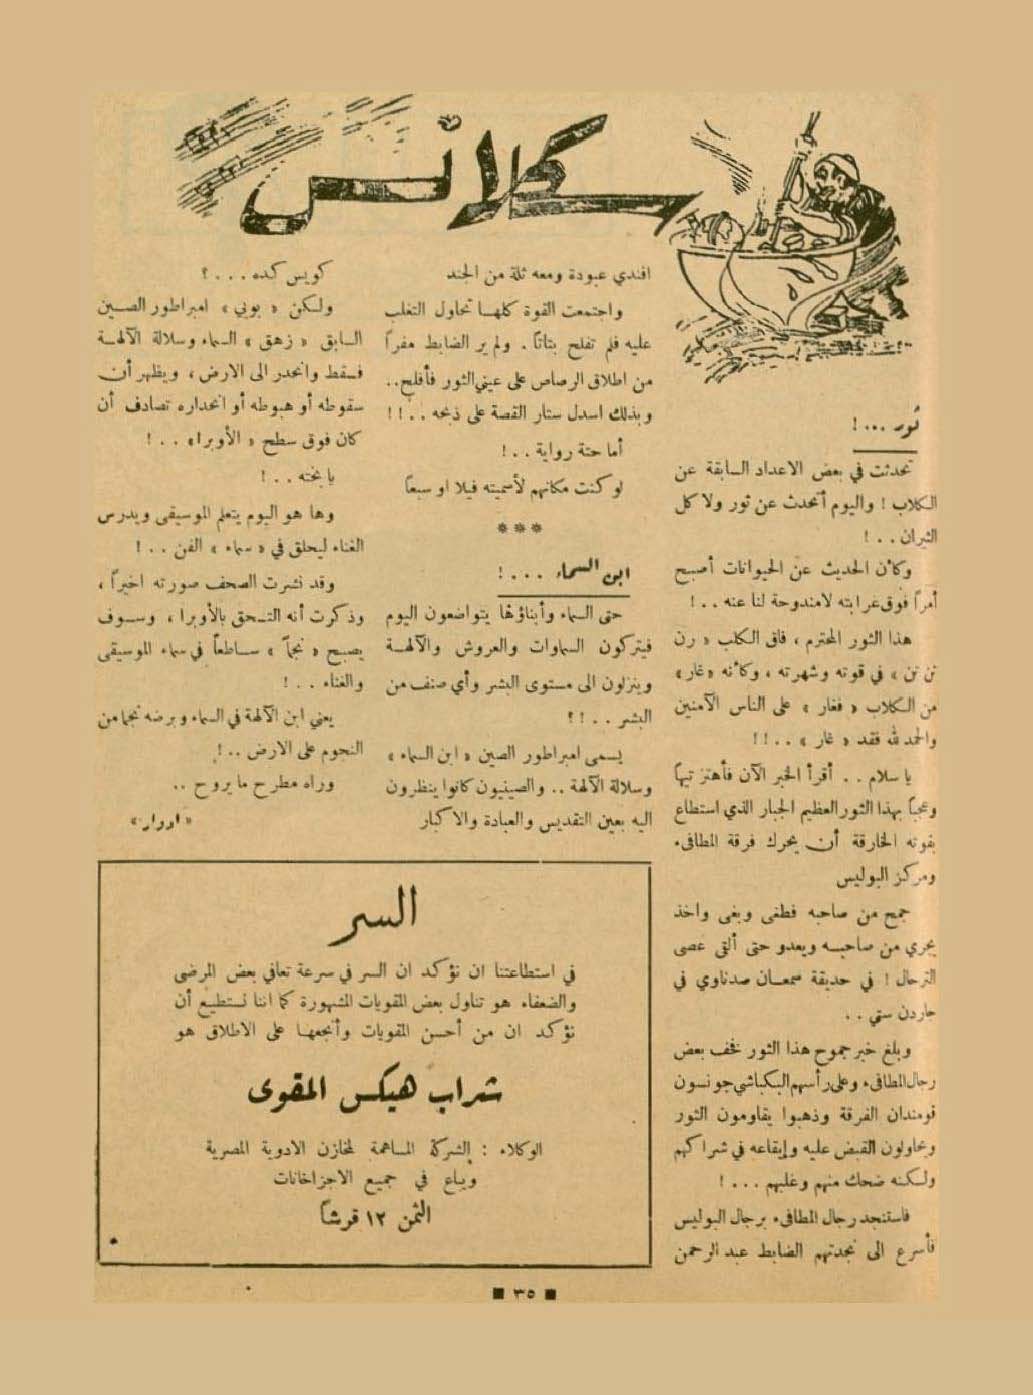 سكلانس
ثور ...!
تحدثت في بعض الاعداد السابقة عن
الكلاب ! واليوم أتحدث عن ثور ولا كل
الثيران ..!
وكأن الحديث عن الحيوانات أصبح
أمراً فوق غرابته لا مندوحة لنا عنه ..!
هذا الثور المحترم ، فاق الكلب « رن
تن تن » في قوته وشهرته ، وكأنه « غار »
من الكلاب « فغار » على الناس الآمنين
والحمد لله فقد « غار » ..!!
يا سلام .. أقرأ الخبر الآن فأهتز تيهاً
وعجباً بهذا الثور العظيم الجبار الذي استطاع
بقوته الخارقة أن يحرك فرقة المطافىء
ومركز البوليس
جمح من صاحبه فطغى وبغى واخذ
يجري من صاحبه ويعدو حتى ألقى عصى
الترحال ! في حديقة سمعان صدناوي في
جاردن ستي ..
وبلغ خبر جموح هذا الثور فخف بعض
رجال المطافىء وعلى رأسهم البكباشي جونسون
قومندان الفرقة وذهبوا يقاومون الثور
ويحاولون القبض عليه وإيقاعه في شراكهم
ولكنه ضحك منهم وغلبهم ...!
فاستنجد رجال المطافىء برجال البوليس
فأسرع الى نجدتهم الضابط عبد الرحمن
افندي عبودة ومعه ثلة من الجند
واجتمعت القوة كلها تحاول التغلب
عليه فلم تفلح بتاتاً . ولم ير الضابط مفراً
من اطلاق الرصاص على عيني الثور فأفلح..
وبذلك اسدل ستار القصة على ذبحه ..!!
أما حتة رواية ..!
لو كنت مكانهم لأسميته فيلا او سبعاً
***
ابن السماء ...!
حتى السماء وأبناؤها يتواضعون اليوم
فيتركون السماوات والعروش والآلهة
وينزلون الى مستوى البشر وأي صنف من
البشر ..!؟
يسمى امبراطور الصين « ابن السماء »
وسلالة الآلهة .. والصينيون كانوا ينظرون
اليه بعين التقديس والعبادة والاكبار
كويس كده ...؟
ولكن « بوبي » امبراطور الصين
السابق « زهق » السماء وسلالة الآلهة
فسقط وانحدر الى الارض ، ويظهر أن
سقوطه أو هبوطه أو انحداره تصادف أن
كان فوق سطح « الأوبرا » ..!
يا بخته ..!
وها هو اليوم يتعلم الموسيقى ويدرس
الغناء ليحلق في « سماء » الفن ..!
وقد نشرت الصحف صورته اخيراً ،
وذكرت أنه التحق بالأوبرا ، وسوف
يصبح « نجماً » ساطعاً في سماء الموسيقى
والغناء ..!
يعني ابن الآلهة في السماء وبرضه نجما من
النجوم على الارض ..!
وراه مطرح ما يروح ..
« ادوار »
السر
في استطاعتنا ان نؤكد ان السر في سرعة تعافي بعض المرضى
والضعفاء هو تناول بعض المقويات المشهورة كما اننا نستطيع أن
نؤكد ان من أحسن المقويات وأنجعها على الاطلاق هو
شراب هيكس المقوى
الوكلاء : الشركة المساهمة لمخازن الادوية المصرية
ويباع في جميع الاجزاخانات
الثمن ١٢ قرشاً
٣٥